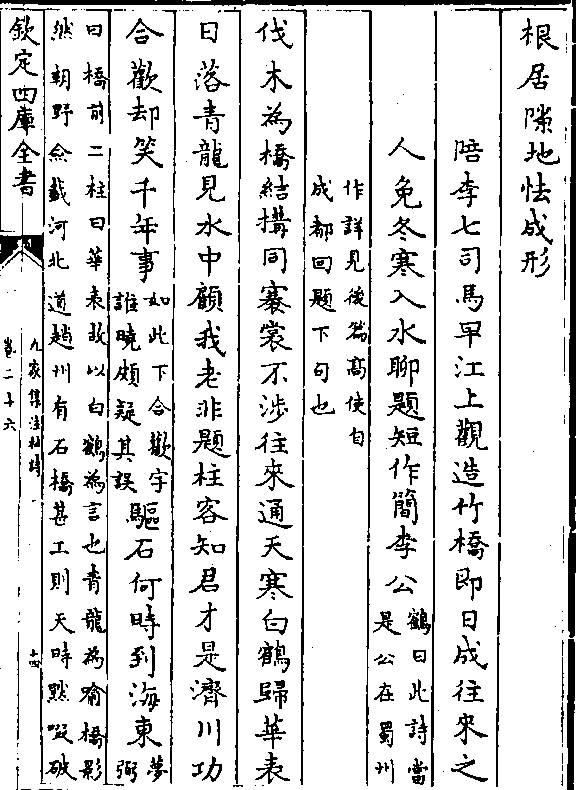 根居隙地怯成形
陪李七司馬早江上觀造竹橋即日成往來之
人免冬寒入水聊題短作簡李公
鶴曰此詩當
是公在蜀州
作詳見後篇髙使自
成都回題下句也
伐木為橋結搆同褰裳不涉往來通天寒白鶴歸華表
日落青龍見水中顧我老非題柱客知君才是濟川功
合歡却笑千年事
如此下合歡字
誰曉頗疑其誤
驅石何時到海東
夢
弼
曰橋前二柱曰華表故以白鶴為言也青龍為喻橋影
然朝野僉載河北道趙州有石橋甚工則天時黙啜破
欽定四庫全書
九家集注杜詩
卷二十六
十四